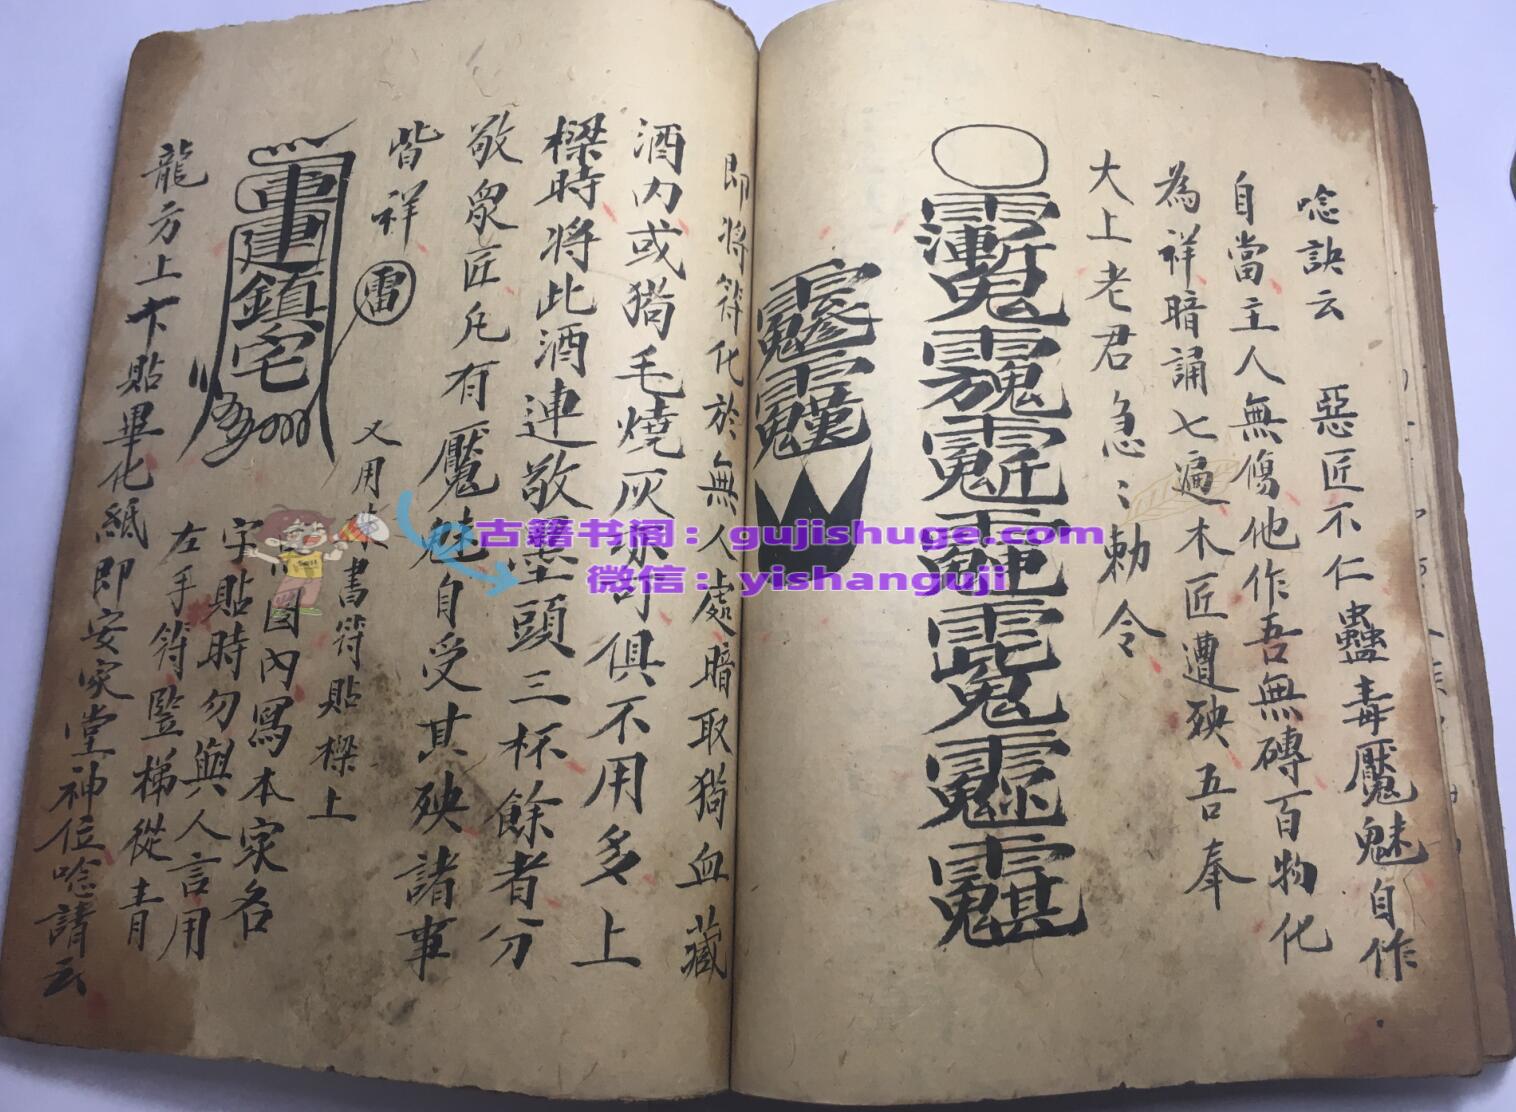 唸訣云　惡匠不仁蠱毒魘魅自作
自當主人無傷他作吾無磚百物化
為祥暗誦七遍木匠遭殃吾奉
大上老君急〻勅令
即將符化於無人處暗取猫血藏
酒内或猫毛燒灰亦可俱不用多上
樑時將此酒連敬墨頭三杯餘者分
敬眾匠凡有魘魅自受其殃諸事
皆祥
雷
又用書符貼樑上
鎮宅
圈內寫本家各
字貼時勿與人言用
左手符竪梯從青
龍方上下貼畢化紙即安家堂神位唸請云
古籍书阁：gujishuge.com
微信：yishanguji